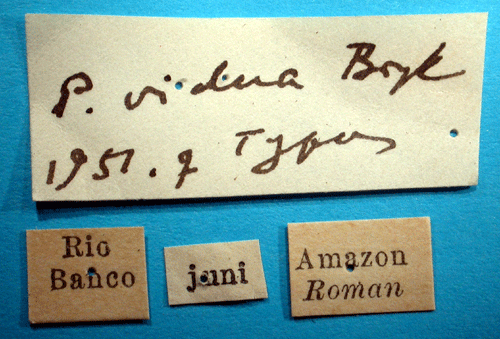 P. vidua Bryk
1951. ♀ Typus
Rio
Banco
juni
Amazon
Roman